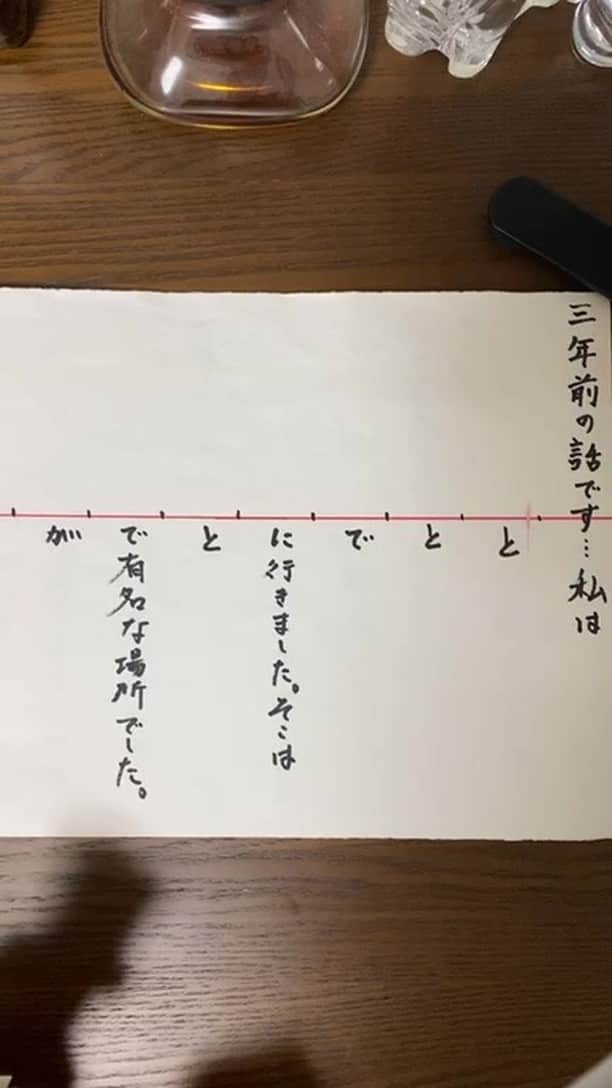 三年前の話です…私は
と
と
で
に行きました。そこは
と
で有名な場所でした。
が